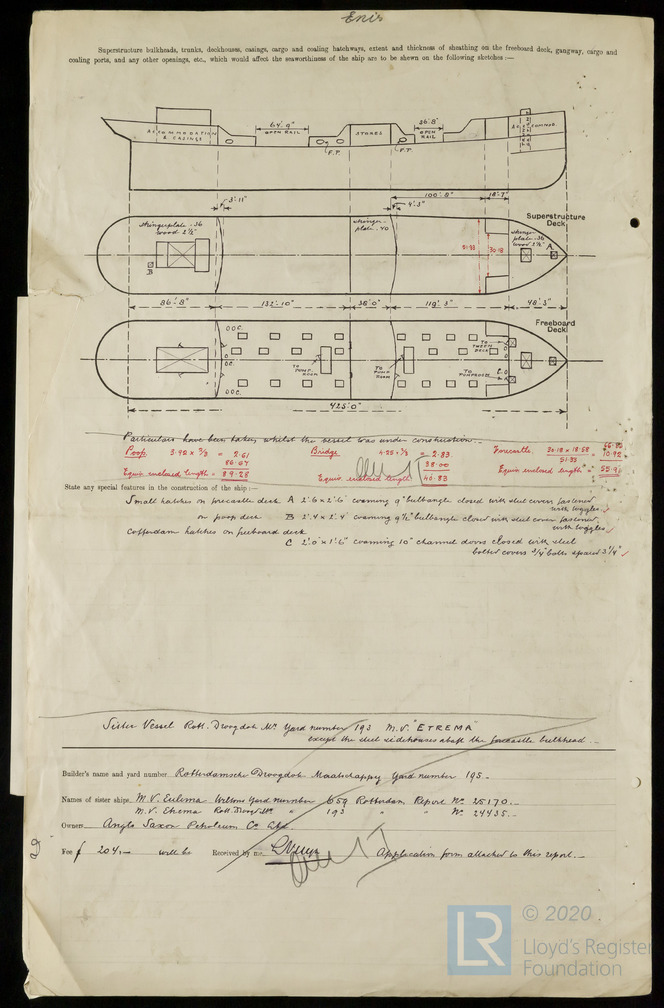 Enis
Superstructure bulkheads, trunks, deckhouses, casings, cargo and coaling hatchways, extent and thickness of sheathing on the freeboard deck, gangway, cargo and
coaling ports, and any other openings, etc., which would affect the seaworthiness of the ship are to be shewn on the following sketches :—
64'. 9" 36'.8"
ACCOMMODATION
& CASINGS
OPEN RAIL
STORES
OPEN
RAIL
ACCOMMOD.
F.P. F.P.
100'. 8" 18'. 7"
3'. 11" 4'. 3"
Superstructure
Deck
stringerplate .36
wood 2½"
stringer-
plate .40
51.33 30.18
stringer-
plate .36
wood 2½"
A
B
86'. 8" 132'. 10" 38'. 0" 119'. 3" 48'. 3"
Freeboard
Deck
TO
PUMP-
ROOM
TO
PUMP
ROOM
TO
TWEEN
DECK
TO
PUMPROOM
C
425'. 0"
Particulars have been taken whilst the vessel was under construction.
Poop 3.92 x 2/3 = 2.61
86.67
Equiv. enclosed length = 89.28
Bridge 4.25 x 2/3 = 2.83
38.00
Equiv enclosed length 40.83
Forecastle 30.18 x 18.58 = 10.92
51.33
Equiv. enclosed length =
State any special features in the construction of the ship :—
Small hatches on forecastle deck A 2'.6 x 2'.6" coaming 9" bulbangle closed with steel covers fastener
with toggles.
on poop deck B 2'.4 x 2'.4" coaming 9½" bulbangle closed with steel cover fastener
with toggles.
Cofferdam hatches on freeboard deck
C 2'.0" x 1'.6" coaming 10" channel doors closed with steel
bolted covers 3/4" bolts spaced 3¼"
Sister Vessel Rott. Droogdok My Yard number 193 M.V. "ETREMA"
except the steel sidehouses abaft the forecastle bulkhead.
Builder's name and yard number Rotterdamsche Droogdok Maatschappy Yard number 195.
Names of sister ships. M.V. Eulima Wiltons Yard number 659 Rotterdam Report No 25170.
M.V. Etrema Rott. Droogd.My " 193 " " No 24435.
Owners Anglo Saxon Petroleum Co Ltd.
Fee f 204.— will be Received by me Application form attached to this report.—
© 2020
LR
Lloyd's Register
Foundation